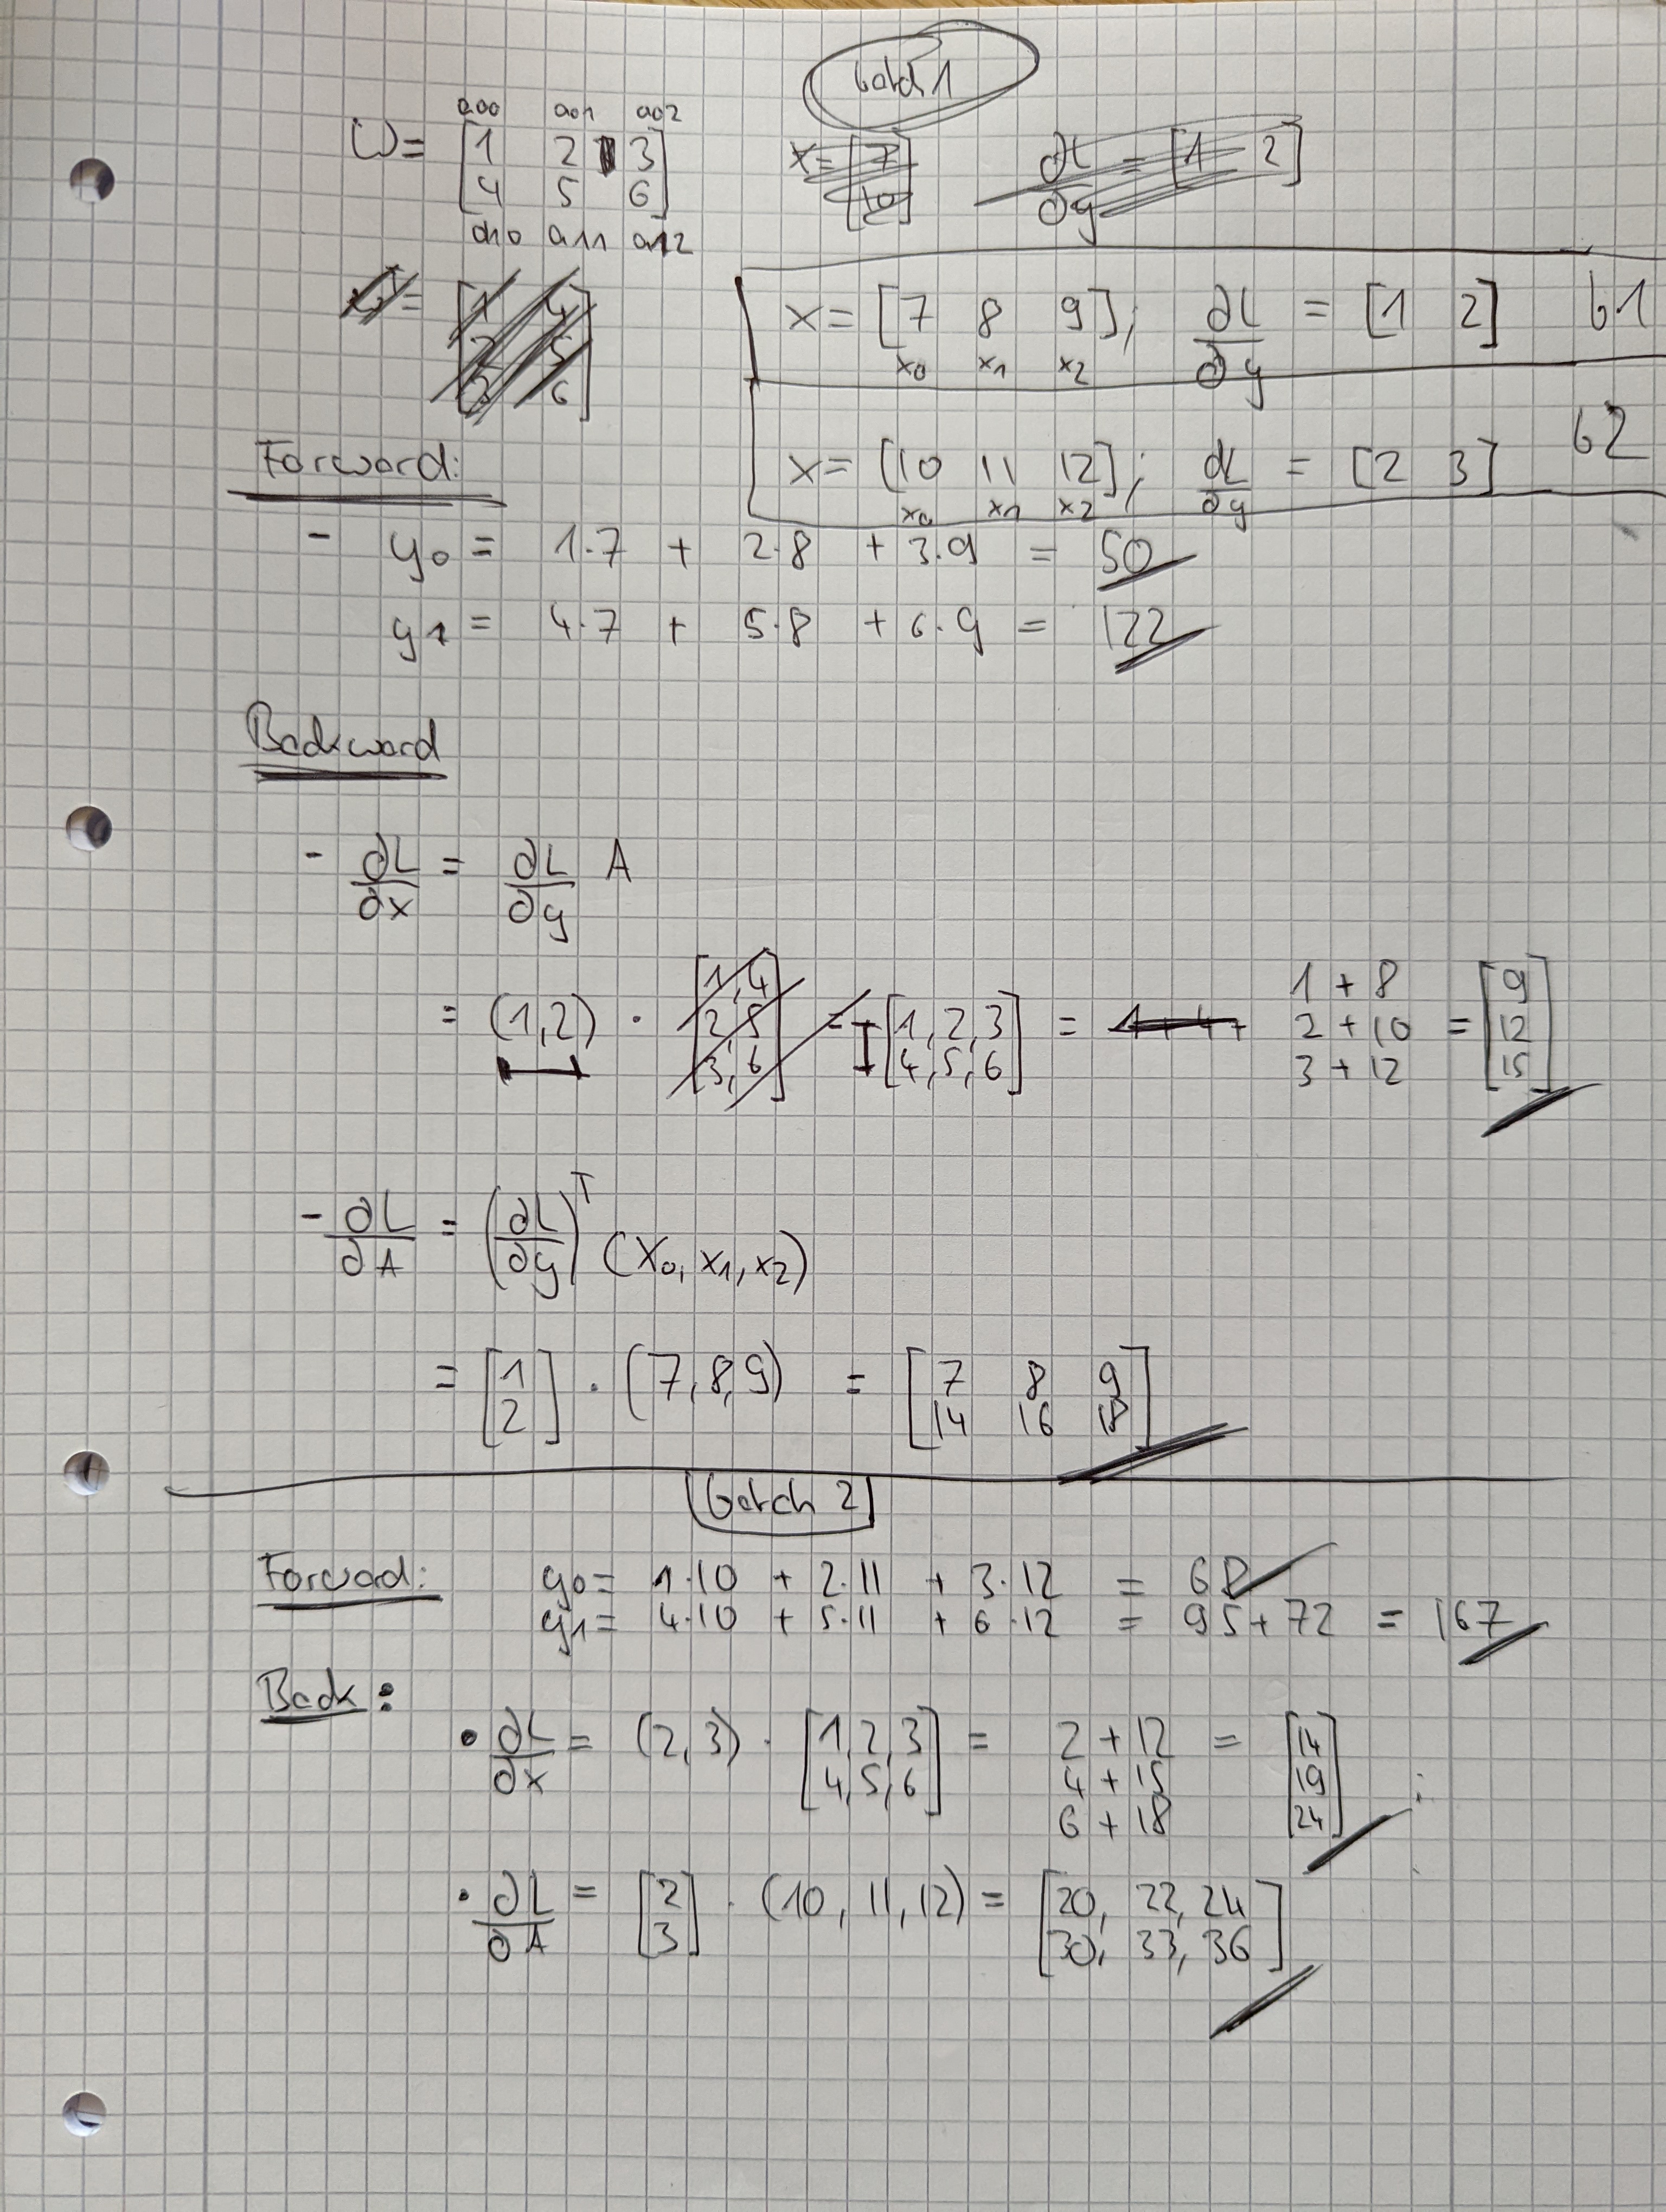 batch 1
a00 a01 a02
W = [1 2 3
4 5 6]
a10 a11 a12
x = [7
10]
∂L/∂y = [1 2]
W = [1 4
2 5
3 6]
x = [7 8 9]; ∂L/∂y = [1 2] b1
x0 x1 x2
x = [10 11 12]; ∂L/∂y = [2 3] b2
x0 x1 x2
Forward:
- y0 = 1·7 + 2·8 + 3·9 = 50
y1 = 4·7 + 5·8 + 6·9 = 122
Backward
- ∂L/∂x = ∂L/∂y A
= (1,2) · [1,4
2,5
3,6] = [1,2,3
4,5,6] = 1+4+
1 + 8
2 + 10
3 + 12
= [9
12
15]
- ∂L/∂A = (∂L/∂y)^T (x0, x1, x2)
= [1
2] · (7,8,9) = [7 8 9
14 16 18]
batch 2
Forward: y0 = 1·10 + 2·11 + 3·12 = 68
y1 = 4·10 + 5·11 + 6·12 = 95+72 = 167
Back:
• ∂L/∂x = (2,3) · [1,2,3
4,5,6] =
2 + 12
4 + 15
6 + 18
= [14
19
24]
• ∂L/∂A = [2
3] · (10, 11, 12) = [20, 22, 24
30, 33, 36]